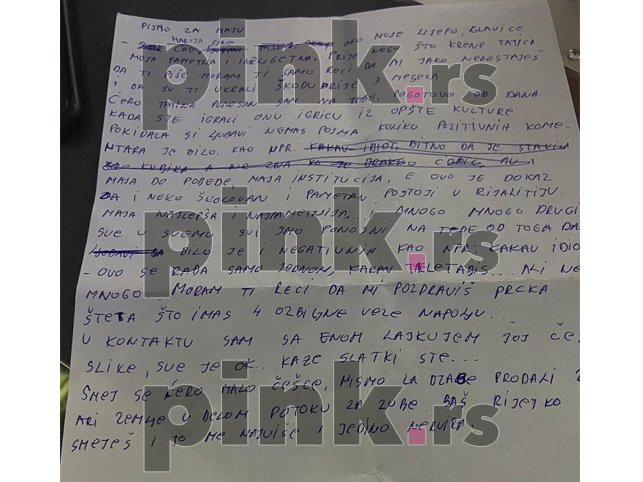 PISMO ZA MAJU
MARIJA SINE
- ČAO, OKO MOJE LIJEPO, GLAVICE
MOJA PAMETNA I INELIGETNA. PRIJE NEGO ŠTO KRENE TATICA
DA TI PIŠE MORAM TI SAMO REĆI DA MI JAKO NEDOSTAJEŠ
I DA SU TI UKRALI ŠKODU PRIJE 3 MESECA
ĆERO TATINA PONOSAN SAM NA TEBE, POGOTOVO OD DANA
KADA STE IGRALI ONU IGRICU IZ OPŠTE KULTURE
POKIDALA SI LJUBAVI NEMAŠ POJMA KOLIKO POZITIVNIH KOME-
NTARA JE BILO. KAO NPR: KAKAV IDIOT, BITNO DA JE STAVILA
KUBIKA A NE ZNA KO JE
MAJA DO POBEDE, MAJA INSTITUCIJA, E OVO JE DOKAZ
DA I NEKO ŠKOLOVAN I PAMETAN POSTOJI U RIJALITIJU.
MAJA NAJLEPŠA I NAJPAMETNIJA.... MNOGO MNOGO DRUGI
SVE U SVEMU SVI SMO PONOSNI NA TEBE OD TOGA DA
BILO JE I NEGATIVNIH KAO NPR: KAKAV IDIO
- OVO SE RAĐA SAMO JEDNOM, KAKAV TELETABIS... ALI NE
MNOGO. MORAM TI REĆI DA MI POZDRAVIŠ PRCKA
ŠTETA ŠTO IMAŠ 4 OZBILJNE VEZE NAPOLJU..
U KONTAKTU SAM SA ENOM LAJKUJEM JOJ ČE
SLIKE, SVE JE OK.. KAŽE SLATKI STE...
SMEJ SE ĆERO MALO ČEŠĆE, NISMO ZA DŽABE PRODALI 2
ARI ZEMLJE U BELOM POTOKU ZA ZUBE. BAŠ RIJETKO
SMEJEŠ I TO ME NAJVIŠE I JEDINO NERVIRA.
pink.rs
pink.rs
pink.rs
pink.rs